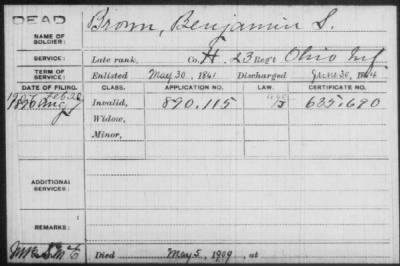 DEAD
NAME OF SOLDIER: Brown, Benjamin S.
SERVICE: Late rank, Co. H. 23 Regt Ohio Inf
TERM OF SERVICE: Enlisted May 30, 1861 Discharged June 30, 1864
DATE OF FILING. CLASS. APPLICATION NO. LAW. CERTIFICATE NO.
1890 Aug Invalid, 890,115 635,690
Widow,
Minor,
ADDITIONAL SERVICES:
REMARKS:
Died May 5, 1909, at